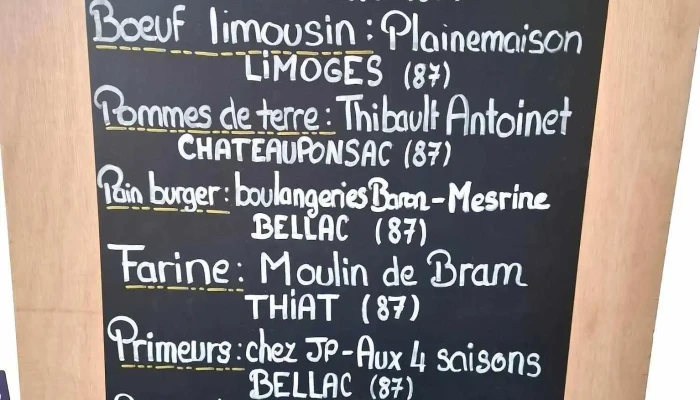 Boeuf limousin : Plainemaison
LIMOGES (87)
Pommes de terre : Thibault Antoinet
CHATEAUPONSAC (87)
Pain burger : boulangeries Baron - Mesrine
BELLAC (87)
Farine : Moulin de Bram
THIAT (87)
Primeurs : chez JP - Aux 4 saisons
BELLAC (87)